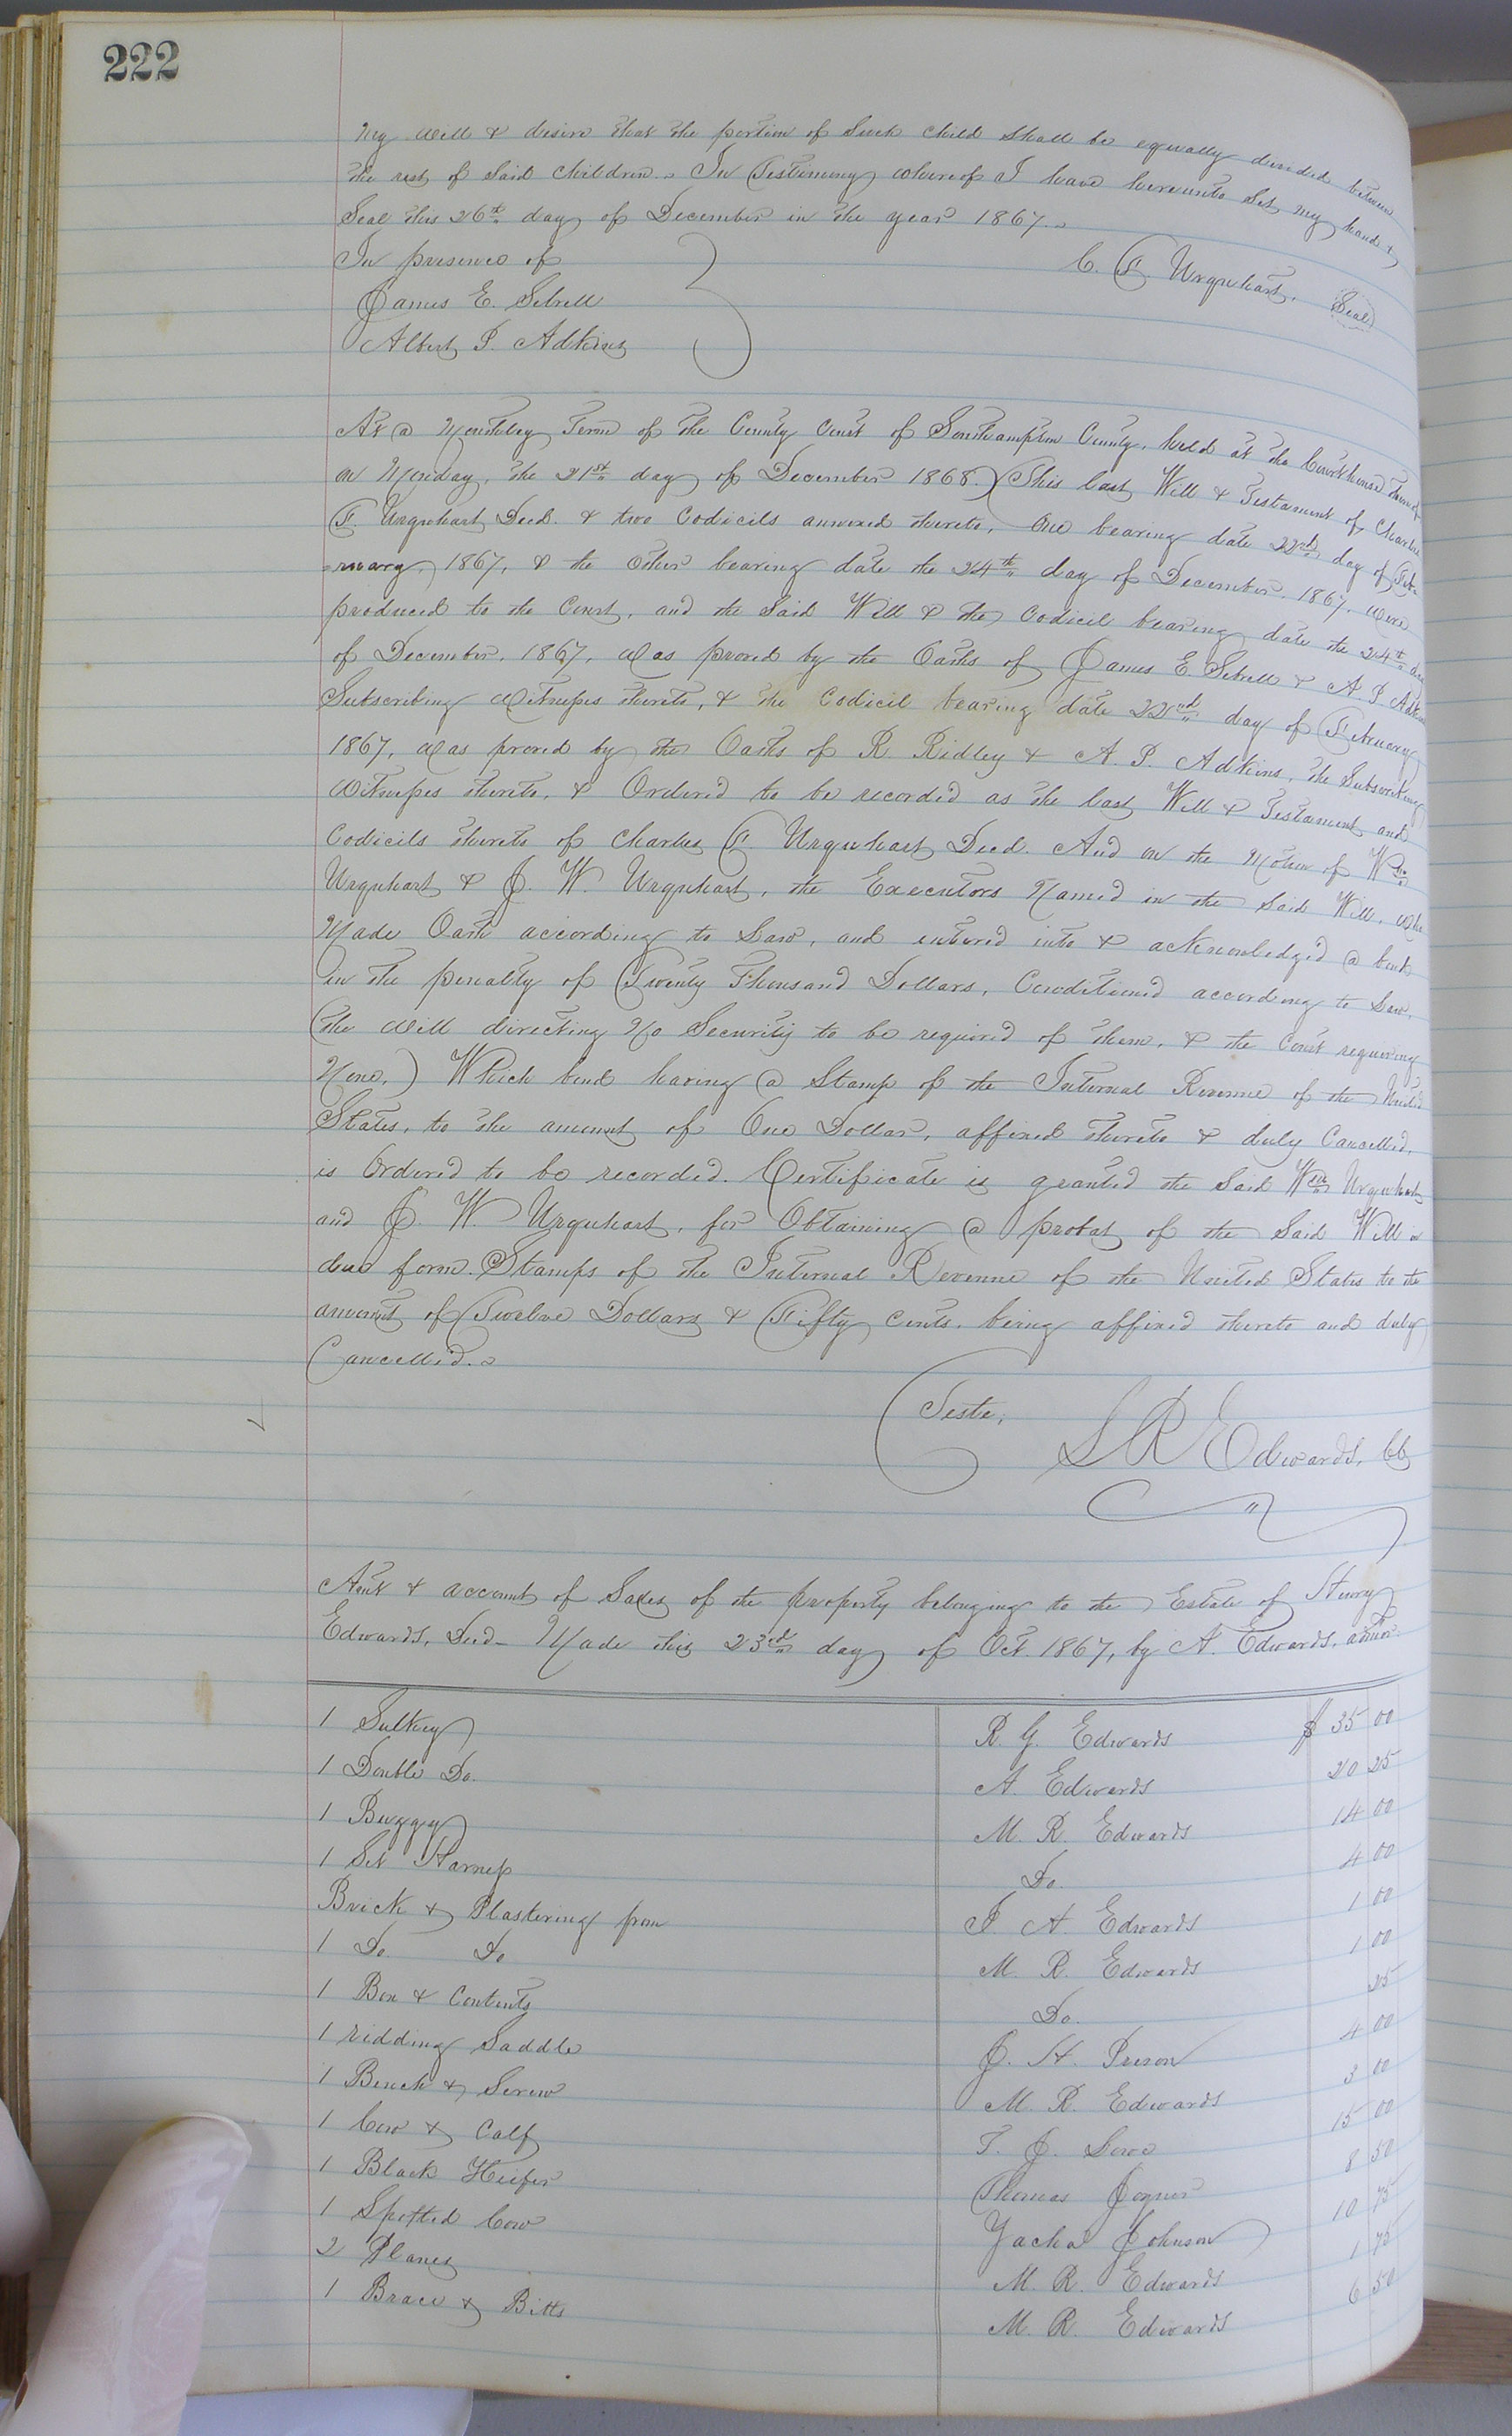 222
My will & desire that the portion of Such child shall be equally divided between
the rest of Said children. In Testimony whereof I have hereunto Set my hand &
Seal this 26th day of December in the year 1867.
In presence of
C. F. Urquhart. Seal
James E. Sebrell
Albert P. Adkins
At a Monthly Term of the County Court of Southampton County, held at the Courthouse thereof
on Monday, the 21st day of December 1868. This last Will & Testament of Charles
F. Urquhart Decd. & two Codicils annexed thereto, One bearing date 22nd day of Feb-
ruary, 1867, & the other bearing date the 24th day of December, 1867, were
produced to the Court, and the Said Will & the Codicil bearing date the 24th day
of December, 1867, was proved by the Oaths of James E. Sebrell & A. P. Adkins
Subscribing Witnesses thereto, & the Codicil bearing date 22nd day of February
1867, was proved by the Oaths of R. Ridley & A. P. Adkins, the Subscribing
Witnesses thereto, & Ordered to be recorded as the last Will & Testament and
Codicils thereto of Charles F. Urquhart Decd. And on the Motion of Wm
Urquhart & J. W. Urquhart, the Executors Named in the Said Will, who
Made Oath according to Law, and entered into & acknowledged a bond
in the penalty of Twenty Thousand Dollars, Conditioned according to Law,
(the Will directing No Security to be required of them, & the Court requiring
None,) Which bond having a Stamp of the Internal Revenue of the United
States, to the amount of One Dollar, affixed thereto & duly Cancelled,
is Ordered to be recorded. Certificate is granted the Said Wm Urquhart
and J. W. Urquhart, for Obtaining a probat of the Said Will in
due form. Stamps of the Internal Revenue of the United States to the
amount of Twelve Dollars & Fifty Cents, being affixed thereto and duly
Cancelled.
Teste,
L R Edwards, CC
& account of Sales of the property belonging to the Estate of Henry
Edwards, Decd- Made this 23rd day of Oct. 1867, by A. Edwards, admor.
1 Sulkey R. G. Edwards $ 35 00
1 Double Do. A. Edwards 20 25
1 Buggy M. R. Edwards 14 00
1 Set Harness Do. 4 00
Brick & Plastering from P. A. Edwards 1 00
1 Do Do M. R. Edwards 1 00
1 Box & Contents Do. 25
1 ridding Saddle J. H. Prison 4 00
1 Bench & Screw M. R. Edwards 3 00
1 Cow & Calf T. J. Lowe 15 00
1 Black Heifer Thomas Joyner 8 50
1 Spotted Cow Johnson 10 75
2 Planes M. R. Edwards 1 75
1 Brace & Bitts M. R. Edwards 6 50